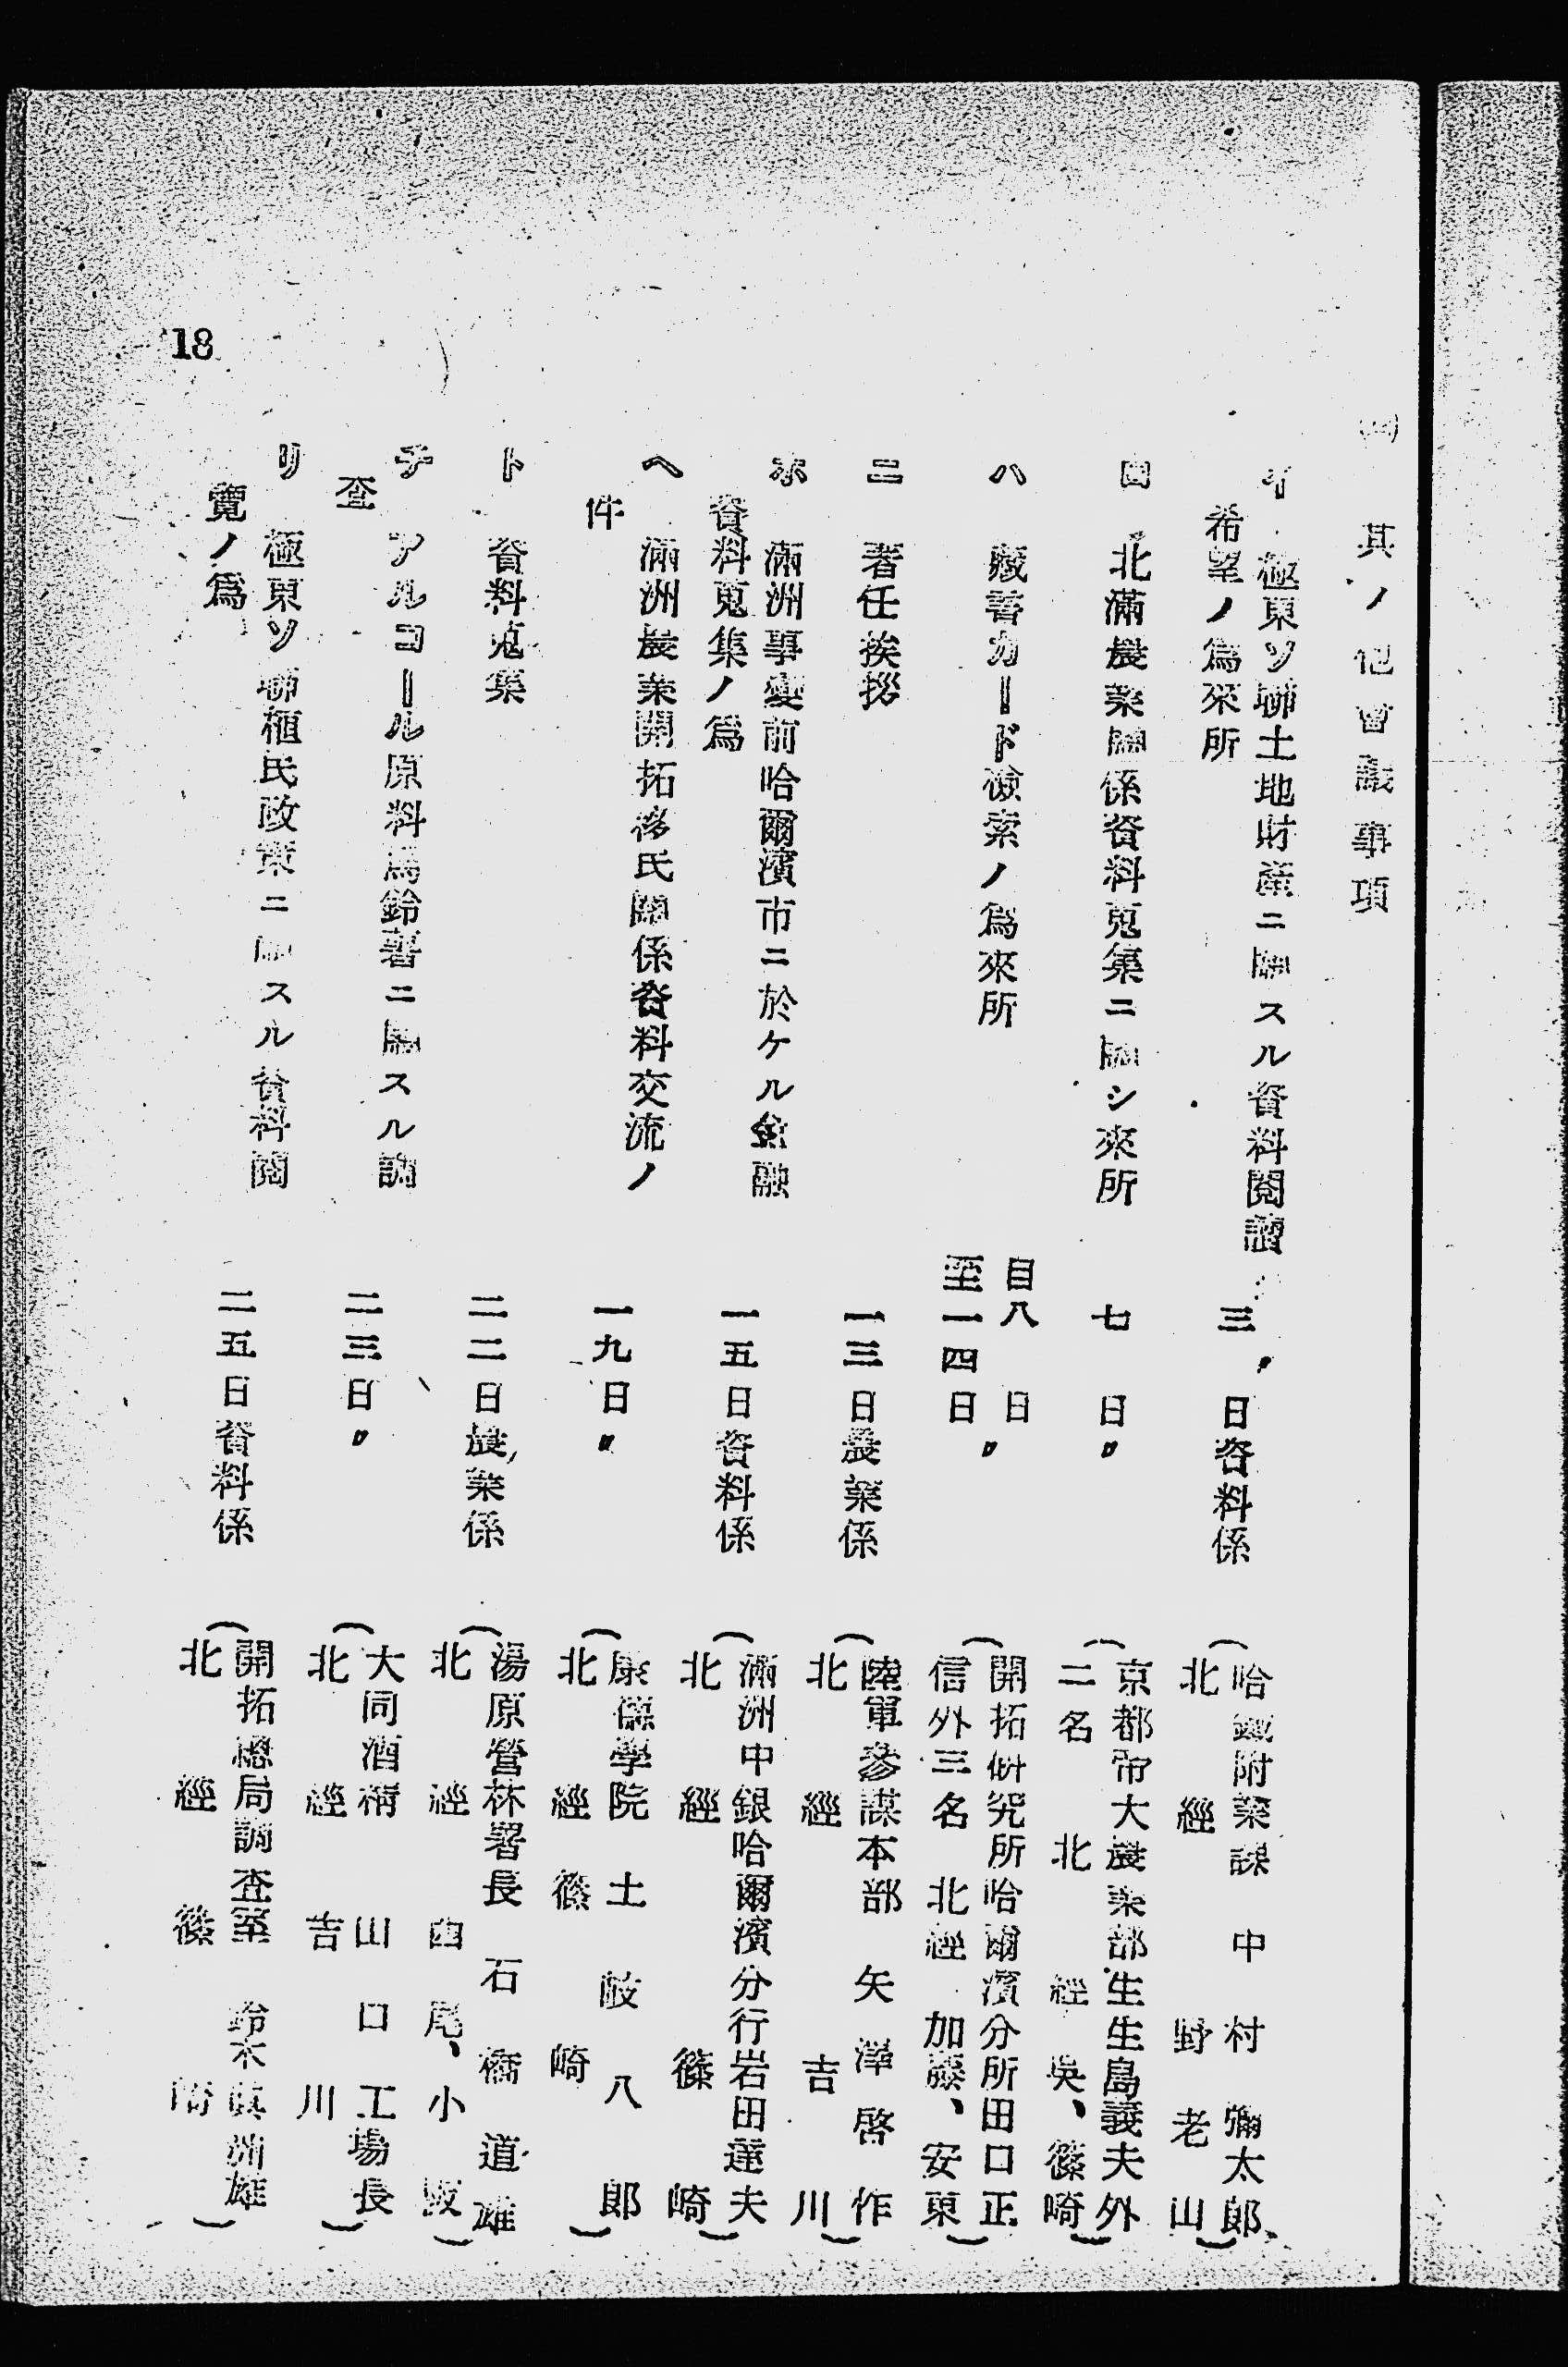 其ノ他會議事項
イ 極東ソ聯土地財產ニ關スル資料閱讀
希望ノ爲來所
三日資料係
哈鐵附業課 中村彌太郎
北經 野老山
ロ 北滿農業關係資料蒐集ニ關シ來所
七日〃
京都帝大農業部生生島義夫外
二名 北經 吳、篠崎
ハ 藏書カード檢索ノ爲來所
自八日
至一四日〃
開拓硏究所哈爾濱分所田口正
信外三名 北經 加藤、安東
ニ 著任挨拶
一三日農業係
陸軍參謀本部 矢澤啓作
北經 吉川
ホ 滿洲事變前哈爾濱市ニ於ケル金融
資料蒐集ノ爲
一五日資料係
滿洲中銀哈爾濱分行岩田達夫
北經 篠崎
ヘ 滿洲農業開拓移民關係資料交流ノ
件
一九日〃
康德學院 土岐八郎
北經 篠崎
ト 資料蒐集
二二日農業係
湯原營林署長 石橋道雄
北經 西尾、小坂
チ アルコール原料馬鈴薯ニ關スル調
查
二三日〃
大同酒精 山口工場長
北經 吉川
リ 極東ソ聯植民政策ニ關スル資料閱
覽ノ爲
二五日資料係
開拓總局調查室 鈴木眞洲雄
北經 篠崎
18